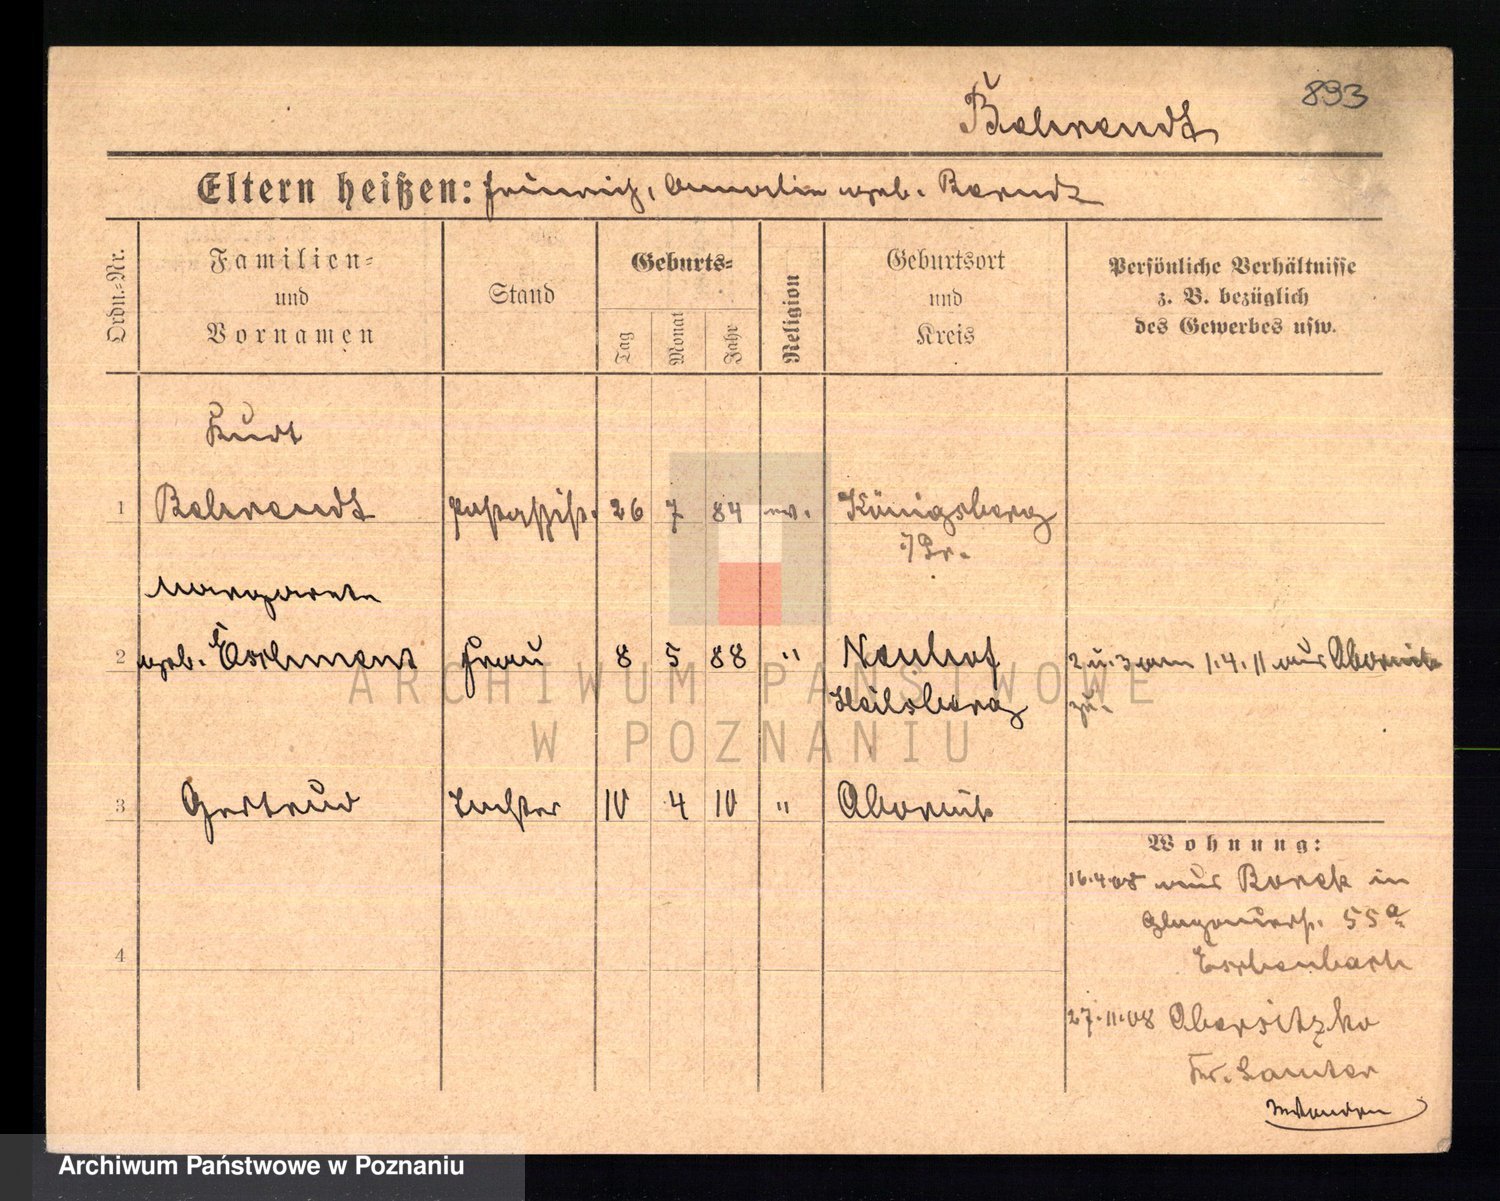 893
Behrendt
Eltern heißen: Heinrich, Amalie geb. Berndt
Ordn.-Nr.
Familien-
und
Vornamen
Stand
Geburts-
Tag
Monat
Jahr
Religion
Geburtsort
und
Kreis
Persönliche Verhältnisse
z. B. bezüglich
des Gewerbes usw.
Kurt
1 Behrendt Postassist. 26 7 84 ev. Königsberg
i/Pr.
Margarete
2 geb. Eschment Frau 8 5 88 " Neuhof
Heilsberg
2 u. 3 am 1.4.11 aus Obornik
zu.
3 Gertrud Tochter 10 4 10 " Obornik
4
Wohnung:
16.4.08 aus Borek in
Glogauerstr. 55a
Eschenbach
27.11.08 Obersitzko
Kr. Samter
ARCHIWUM PAŃSTWOWE
W POZNANIU
Archiwum Państwowe w Poznaniu